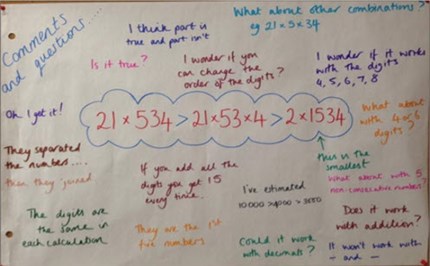 Comments
and questions....
I think part is
true and part isn't
What about other combinations?
eg 21 × 5 × 34
Is it true?
I wonder if you
can change the
order of the digits?
I wonder if it works
with the digits
4, 5, 6, 7, 8
Oh I get it!
21 × 534 > 21 × 53 × 4 > 2 × 1534
What about
with 4 or 6
digits?
They separated
the numbers....
then they joined
this is the
smallest
If you add all the
digits you get 15
every time.
I've estimated
10000 > 4000 > 3000
What about with 5
non-consecutive numbers?
The digits are
the same in
each calculation
They are the 1st
five numbers
Could it work
with decimals?
Does it work
with addition?
It won't work with
÷ and -